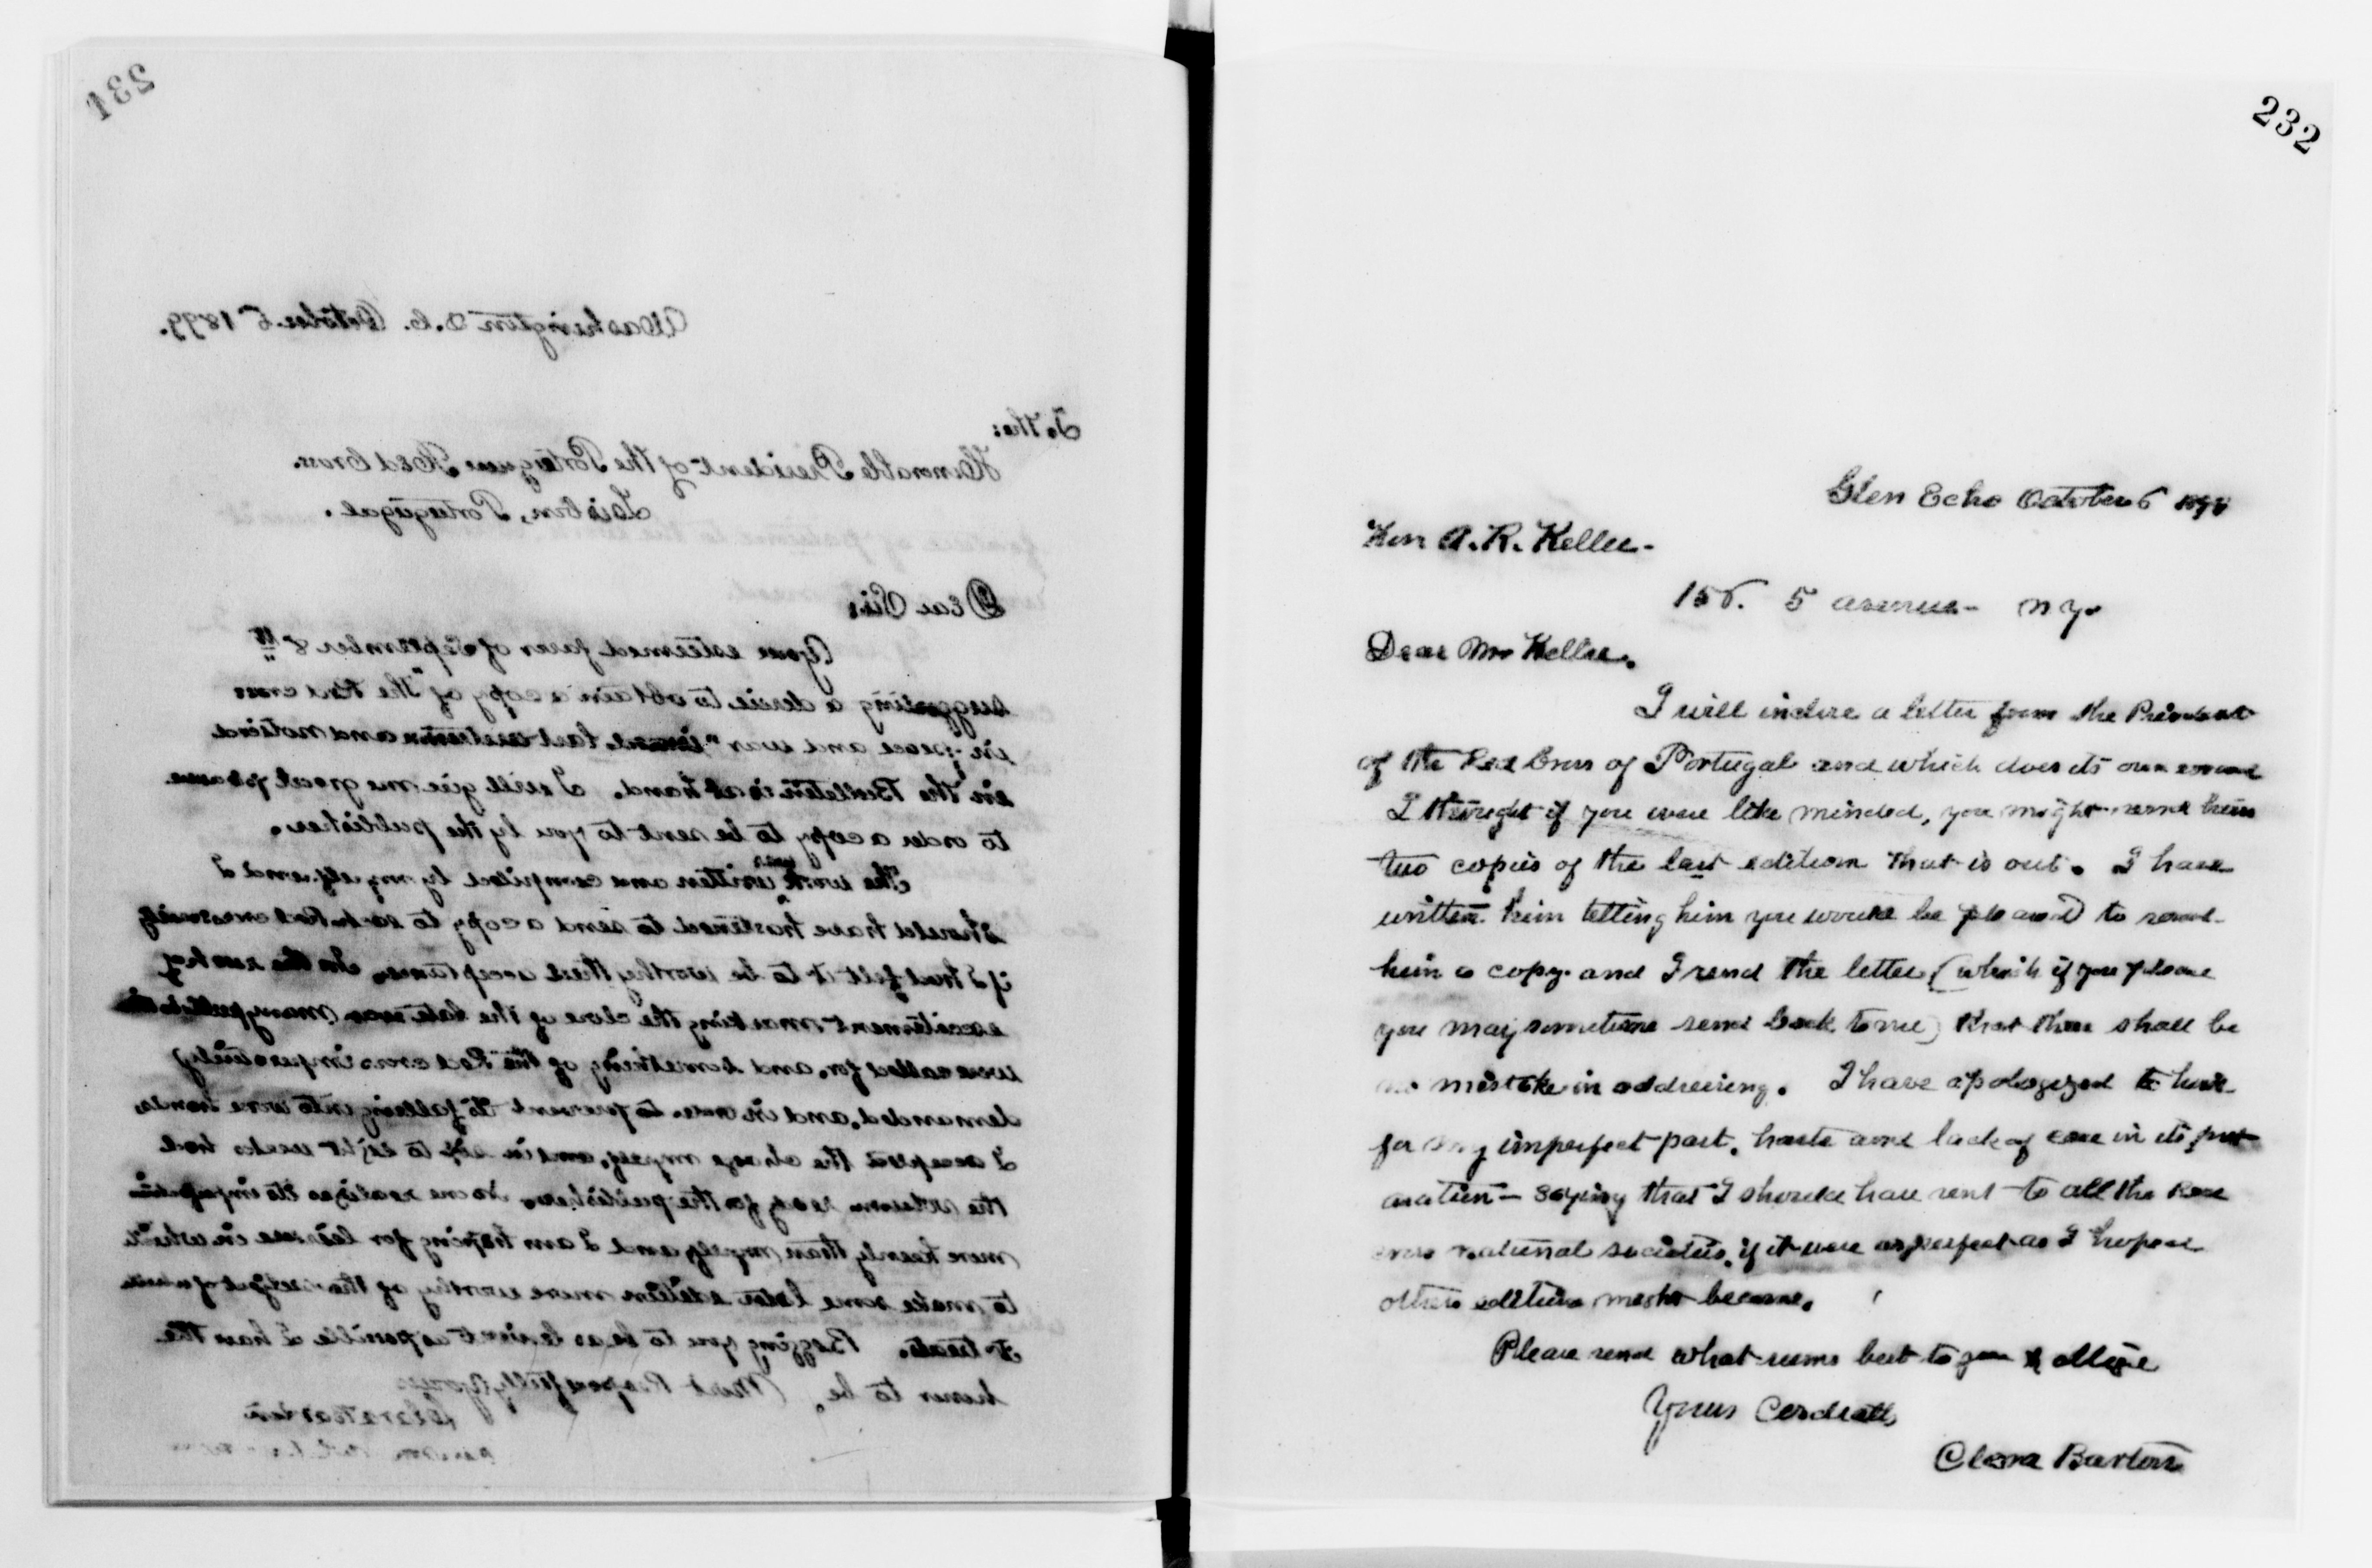 231
Washington D.C. October 6 1899.
To the:
Honorable President of the Portuguese Red Cross.
Lisbon, Portugugal.
Dear Sir;
Your esteemed favor of September 8th
suggesting a desire to obtain a copy of "The Red cross
in peace and war" and noticed
in the Bulletin is at hand. I will give me great pleasure
to order a copy to be sent to you by the publisher.
The work was written and compiled by myself, and I
should have hastened to send a copy to each Red cross society
if I had felt it to be worthy their acceptance. In the rush of
excitement marking the close of the late war many
were called for, and something of the Red cross imperatively
demanded, and in order to prevent its falling into wore hands,
I accepted the charge myself, and in six to eight weeks had
the volume ready for the publishers. No one realizes its imperfections
more keenly than myself, and I am hoping for leisure in which
to make some later edition more worthy of the subject of which
it treats. Begging you to be as lenient as possible I have the
honor to be, Most Respectfully Yours
Clara Barton
232
Glen Echo October 6
Hon A. R. Keller-
156. 5 avenue- N Y.
Dear Mr Keller.
I will inclose a letter from the President
of the Red Cross of Portugal and which does its own errand
I thought if you were like minded, you might send him
two copies of the last edition that is out. I have
written him telling him you would be pleased to send
him a copy. and I send the letter (which if you please
you may sometime send back to me) that there shall be
no mistake in addressing. I have apologized to him
for any imperfect part, haste and lack of care in its prep
aration - saying that I should have sent to all the Red
cross national societies, if it were as perfect as I hoped
other edition might become.
Please send what seems best to you & oblige
Yours Cordially
Clara Barton